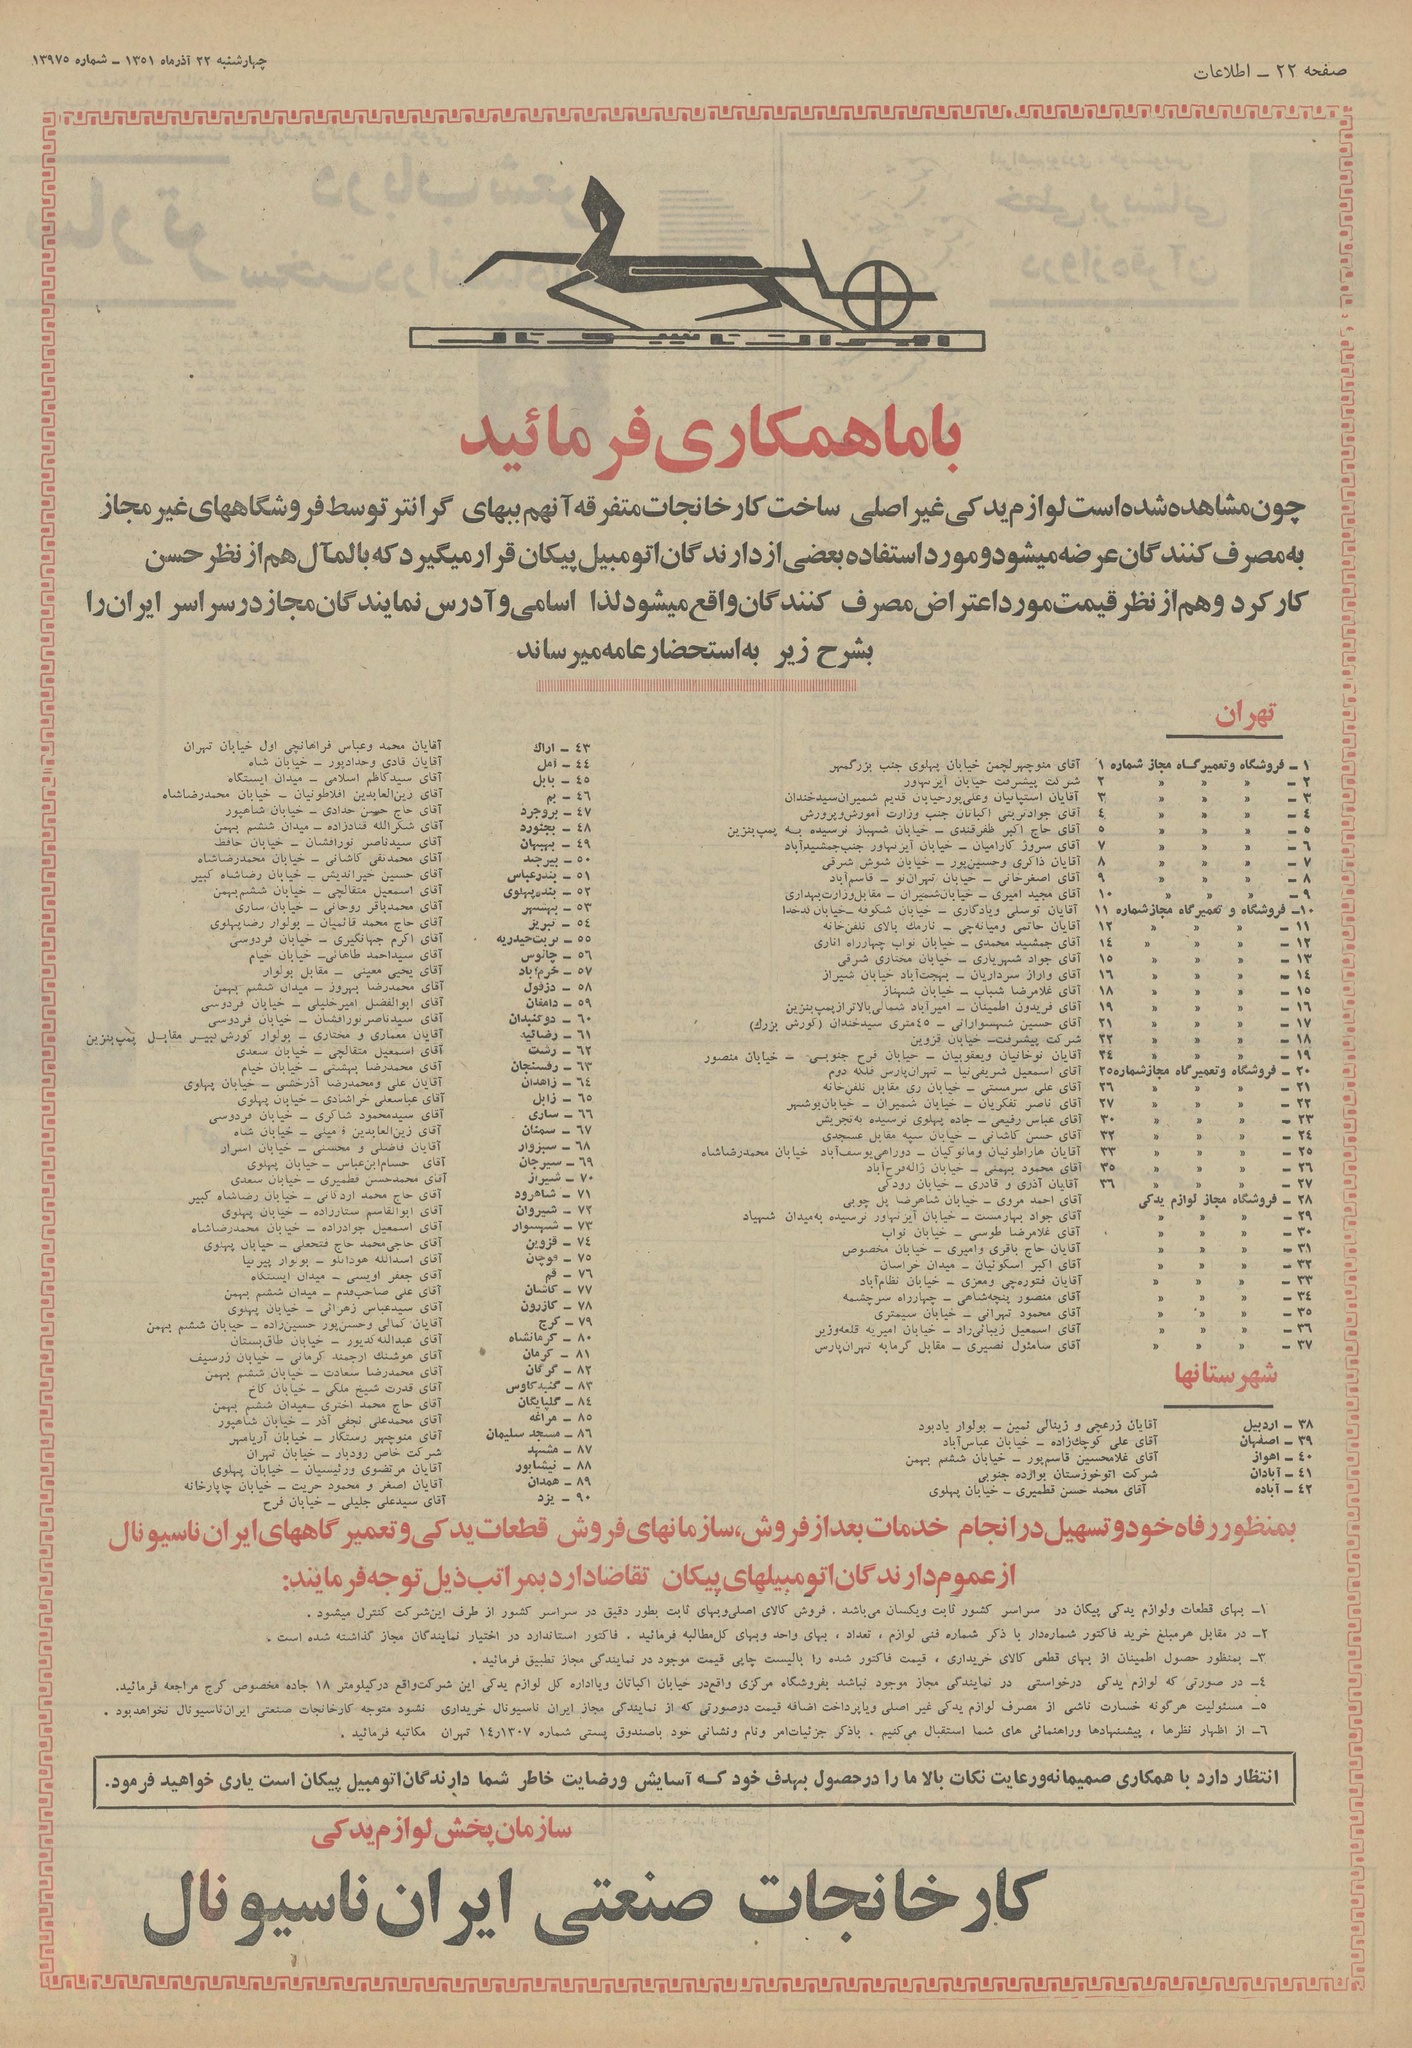 صفحه ۲۲ ــ اطلاعات
چهارشنبه ۲۲ آذرماه ۱۳۵۱ ــ شماره ۱۳۹۷۵
ایران ناسیونال
با ما همکاری فرمائید
چون مشاهده شده است لوازم یدکی غیر اصلی ساخت کارخانجات متفرقه آنهم ببهای گرانتر توسط فروشگاههای غیر مجاز
به مصرف کنندگان عرضه میشود و مورد استفاده بعضی از دارندگان اتومبیل پیکان قرار میگیرد که بالمآل هم از نظر حسن
کارکرد و هم از نظر قیمت مورد اعتراض مصرف کنندگان واقع میشود لذا اسامی و آدرس نمایندگان مجاز در سراسر ایران را
بشرح زیر به استحضار عامه میرساند
تهران
۱ ــ فروشگاه وتعمیرگاه مجاز شماره ۱ آقای منوچهر لچمن خیابان پهلوی جنب بزرگمهر
۲ ــ « « « ۲ شرکت پیشرفت خیابان آیزنهاور
۳ ــ « « « ۳ آقایان استپانیان وعلی‌پور خیابان قدیم شمیران سیدخندان
۴ ــ « « « ۴ آقای جواد تربتی اکباتان جنب وزارت آموزش وپرورش
۵ ــ « « « ۵ آقای حاج اکبر ظفرقندی ــ خیابان شهباز نرسیده به پمپ‌بنزین
۶ ــ « « « ۷ آقای سروژ کارامیان ــ خیابان آیزنهاور جنب جمشیدآباد
۷ ــ « « « ۸ آقایان ذاکری وحسین‌پور ــ خیابان شوش شرقی
۸ ــ « « « ۹ آقای اصغرخانی ــ خیابان تهران‌نو ــ قاسم‌آباد
۹ ــ « « « ۱۰ آقای مجید امیری ــ خیابان شمیران ــ مقابل وزارت بهداری
۱۰ــ فروشگاه و تعمیرگاه مجاز شماره ۱۱ آقایان توسلی ویادگاری ــ خیابان شکوفه ــ خیابان کدخدا
۱۱ ــ « « « ۱۲ آقایان حاتمی ومیانه‌چی ــ نارمک بالای تلفن‌خانه
۱۲ ــ « « « ۱۴ آقای جمشید محمدی ــ خیابان نواب چهارراه اناری
۱۳ ــ « « « ۱۵ آقای جواد شهریاری ــ خیابان مختاری شرقی
۱۴ ــ « « « ۱۶ آقای واراز سرداریان ــ بهجت‌آباد خیابان شیراز
۱۵ ــ « « « ۱۸ آقای غلامرضا شباب ــ خیابان شهناز
۱۶ ــ « « « ۱۹ آقای فریدون اطمینان ــ امیرآباد شمالی بالاتر از پمپ‌بنزین
۱۷ ــ « « « ۲۱ آقای حسین شهسوارانی ــ ۴۵متری سیدخندان (کورش بزرگ)
۱۸ ــ « « « ۲۲ شرکت پیشرفت ــ خیابان قزوین
۱۹ ــ « « « ۲۴ آقایان نوخانیان ویعقوبیان ــ خیابان فرح جنوبی ــ خیابان منصور
۲۰ ــ فروشگاه وتعمیرگاه مجاز شماره ۲۵ آقای اسمعیل شریفی‌نیا ــ تهران‌پارس فلکه دوم
۲۱ ــ « « « ۲۶ آقای علی سرمستی ــ خیابان ری مقابل تلفن‌خانه
۲۲ ــ « « « ۲۷ آقای ناصر تفکریان ــ خیابان شمیران ــ خیابان بوشهر
۲۳ ــ « « « ۳۰ آقای عباس رفیعی ــ جاده پهلوی نرسیده به تجریش
۲۴ ــ « « « ۳۲ آقای حسن کاشانی ــ خیابان سپه مقابل عسجدی
۲۵ ــ « « « ۳۳ آقایان هاراطونیان ومانوکیان ــ دوراهی یوسف‌آباد خیابان محمدرضاشاه
۲۶ ــ « « « ۳۵ آقای محمود بهمنی ــ خیابان ژاله فرح‌آباد
۲۷ ــ « « « ۳۶ آقایان آذری و قادری ــ خیابان رودکی
۲۸ ــ فروشگاه مجاز لوازم یدکی آقای احمد مروی ــ خیابان شاهرضا پل چوبی
۲۹ ــ « « « آقای جواد بهارمست ــ خیابان آیزنهاور نرسیده به میدان شهیاد
۳۰ ــ « « « آقای غلامرضا طوسی ــ خیابان نواب
۳۱ ــ « « « آقایان حاج باقری وامیری ــ خیابان مخصوص
۳۲ ــ « « « آقای اکبر اسکوئیان ــ میدان خراسان
۳۳ ــ « « « آقایان فتوره‌چی ومعزی ــ خیابان نظام‌آباد
۳۴ ــ « « « آقای منصور پنچه‌شاهی ــ چهارراه سرچشمه
۳۵ ــ « « « آقای محمود تهرانی ــ خیابان سیمتری
۳۶ ــ « « « آقای اسمعیل زیبائی‌راد ــ خیابان امیریه قلعه‌وزیر
۳۷ ــ « « « آقای سامئول نصیری ــ مقابل گرمابه تهران‌پارس
شهرستانها
۳۸ ــ اردبیل آقایان زرعچی و زینالی ثمین ــ بولوار یادبود
۳۹ ــ اصفهان آقای علی کوچک‌زاده ــ خیابان عباس‌آباد
۴۰ ــ اهواز آقای غلامحسین قاسم‌پور ــ خیابان ششم بهمن
۴۱ ــ آبادان شرکت اتوخوزستان بوارده جنوبی
۴۲ ــ آباده آقای محمد حسن قطمیری ــ خیابان پهلوی
۴۳ ــ اراک آقایان محمد وعباس فراهانچی اول خیابان تهران
۴۴ ــ آمل آقایان قادی وحدادپور ــ خیابان شاه
۴۵ ــ بابل آقای سیدکاظم اسلامی ــ میدان ایستگاه
۴۶ ــ بم آقای زین‌العابدین افلاطونیان ــ خیابان محمدرضاشاه
۴۷ ــ بروجرد آقای حاج حسن حدادی ــ خیابان شاهپور
۴۸ ــ بجنورد آقای شکرالله قنادزاده ــ میدان ششم بهمن
۴۹ ــ بهبهان آقای سیدناصر نورافشان ــ خیابان حافظ
۵۰ ــ بیرجند آقای محمدتقی کاشانی ــ خیابان محمدرضاشاه
۵۱ ــ بندرعباس آقای حسین خیراندیش ــ خیابان رضاشاه کبیر
۵۲ ــ بندرپهلوی آقای اسمعیل متقالچی ــ خیابان ششم بهمن
۵۳ ــ بهشهر آقای محمدباقر روحانی ــ خیابان ساری
۵۴ ــ تبریز آقای حاج محمد قائمیان ــ بولوار رضاپهلوی
۵۵ ــ تربت‌حیدریه آقای اکرم جهانگیری ــ خیابان فردوسی
۵۶ ــ چالوس آقای سیداحمد طاهائی ــ خیابان خیام
۵۷ ــ خرم‌آباد آقای یحیی معینی ــ مقابل بولوار
۵۸ ــ دزفول آقای محمدرضا بهروز ــ میدان ششم بهمن
۵۹ ــ دامغان آقای ابوالفضل امیرخلیلی ــ خیابان فردوسی
۶۰ ــ دوگنبدان آقای سیدناصر نورافشان ــ خیابان فردوسی
۶۱ ــ رضائیه آقایان معماری و مختاری ــ بولوار کورش کبیر مقابل پمپ‌بنزین
۶۲ ــ رشت آقای اسمعیل متقالچی ــ خیابان سعدی
۶۳ ــ رفسنجان آقای محمدرضا بهشتی ــ خیابان خیام
۶۴ ــ زاهدان آقایان علی ومحمدرضا آذرخشی ــ خیابان پهلوی
۶۵ ــ زابل آقای عباسعلی خراشادی ــ خیابان پهلوی
۶۶ ــ ساری آقای سیدمحمود شاکری ــ خیابان فردوسی
۶۷ ــ سمنان آقای زین‌العابدین ــ خیابان شاه
۶۸ ــ سبزوار آقایان فاضلی و محسنی ــ خیابان اسرار
۶۹ ــ سیرجان آقای حسام ابن‌عباس ــ خیابان پهلوی
۷۰ ــ شیراز آقای محمدحسن قطمیری ــ خیابان سعدی
۷۱ ــ شاهرود آقای حاج محمد اردکانی ــ خیابان رضاشاه کبیر
۷۲ ــ شیروان آقای ابوالقاسم ستارزاده ــ خیابان پهلوی
۷۳ ــ شهسوار آقای اسمعیل جوادزاده ــ خیابان محمدرضاشاه
۷۴ ــ قزوین آقای حاجی‌محمد حاج فتحعلی ــ خیابان پهلوی
۷۵ ــ قوچان آقای اسدالله هودانلو ــ بولوار پیرنیا
۷۶ ــ قم آقای جعفر اویسی ــ میدان ایستگاه
۷۷ ــ کاشان آقای علی صاحب‌قدم ــ میدان ششم بهمن
۷۸ ــ کازرون آقای سیدعباس زهرائی ــ خیابان پهلوی
۷۹ ــ کرج آقایان کمالی وحسن‌پور حسین‌زاده ــ خیابان ششم بهمن
۸۰ ــ کرمانشاه آقای عبدالله کدیور ــ خیابان طاق‌بستان
۸۱ ــ کرمان آقای هوشنگ ارجمند کرمانی ــ خیابان زرسیف
۸۲ ــ گرگان آقای محمدرضا سعادت ــ خیابان ششم بهمن
۸۳ ــ گنبدکاوس آقای قدرت شیخ ملکی ــ خیابان کاخ
۸۴ ــ گلپایگان آقای حاج محمد اختری ــ میدان ششم بهمن
۸۵ ــ مراغه آقای محمدعلی نجفی آذر ــ خیابان شاهپور
۸۶ ــ مسجد سلیمان آقای منوچهر رستگار ــ خیابان آریامهر
۸۷ ــ مشهد شرکت خاص رودبار ــ خیابان تهران
۸۸ ــ نیشابور آقایان مرتضوی ورئیسیان ــ خیابان پهلوی
۸۹ ــ همدان آقایان اصغر و محمود حریت ــ خیابان چاپارخانه
۹۰ ــ یزد آقای سیدعلی جلیلی ــ خیابان فرح
بمنظور رفاه خود و تسهیل در انجام خدمات بعد از فروش، سازمانهای فروش قطعات یدکی و تعمیرگاههای ایران ناسیونال
از عموم دارندگان اتومبیلهای پیکان تقاضا دارد بمراتب ذیل توجه فرمایند:
۱ــ بهای قطعات ولوازم یدکی پیکان در سراسر کشور ثابت ویکسان می‌باشد . فروش کالای اصلی وبهای ثابت بطور دقیق در سراسر کشور از طرف این شرکت کنترل میشود .
۲ــ در مقابل هر مبلغ خرید فاکتور شماره‌دار با ذکر شماره فنی لوازم ، تعداد ، بهای واحد وبهای کل مطالبه فرمائید . فاکتور استاندارد در اختیار نمایندگان مجاز گذاشته شده است .
۳ــ بمنظور حصول اطمینان از بهای قطعی کالای خریداری ، قیمت فاکتور شده را بالیست چاپی قیمت موجود در نمایندگی مجاز تطبیق فرمائید .
۴ــ در صورتی که لوازم یدکی درخواستی در نمایندگی مجاز موجود نباشد بفروشگاه مرکزی واقع در خیابان اکباتان ویااداره کل لوازم یدکی این شرکت واقع در کیلومتر ۱۸ جاده مخصوص کرج مراجعه فرمائید.
۵ــ مسئولیت هرگونه خسارت ناشی از مصرف لوازم یدکی غیر اصلی ویاپرداخت اضافه قیمت درصورتی که از نمایندگی مجاز ایران ناسیونال خریداری نشود متوجه کارخانجات صنعتی ایران‌ناسیونال نخواهدبود .
۶ــ از اظهار نظرها ، پیشنهادها وراهنمائی های شما استقبال می‌کنیم . باذکر جزئیات‌امر ونام ونشانی خود باصندوق پستی شماره ۱۴ر۱۳۰۷ تهران مکاتبه فرمائید .
انتظار دارد با همکاری صمیمانه ورعایت نکات بالا ما را در حصول بهدف خود که آسایش ورضایت خاطر شما دارندگان اتومبیل پیکان است یاری خواهید فرمود.
سازمان پخش لوازم یدکی
کارخانجات صنعتی ایران ناسیونال